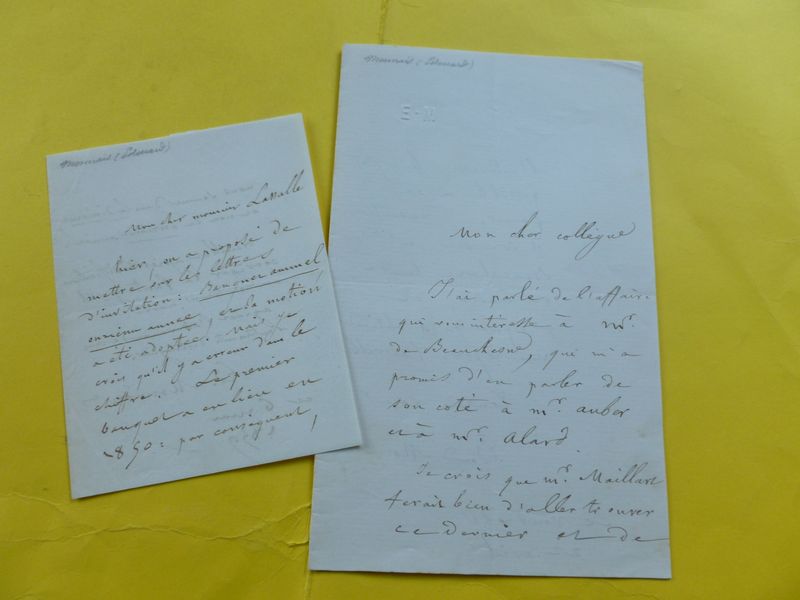 Monnais (Edouard)
Mon cher monsieur Lasalle
hier, on a proposé de
mettre sur les lettres
d'invitation : Banquet annuel
onzième année, et la motion
a été adoptée. Mais je
crois qu'il y a erreur dans le
chiffre. Le premier
banquet a eu lieu en
1850 : par conséquent,
Monnais (Edouard)
E-M
Mon cher collègue
J'ai parlé de l'affaire
qui vous intéresse à Mr.
de Beauchesne, qui m'a
promis d'en parler de
son coté à Mr. Auber
et à Mr. Alard.
Je crois que Mr. Maillart
ferait bien d'aller trouver
ce dernier et de